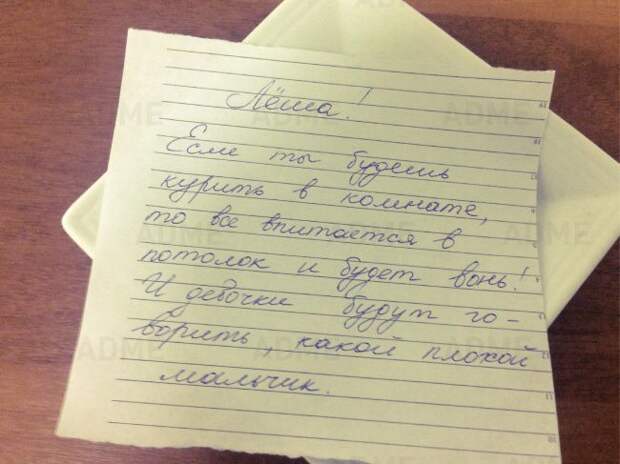 Лёша!
Если ты будешь
курить в комнате,
то все впитается в
потолок и будет вонь!
И девочки будут го-
ворить, какой плохой
мальчик.